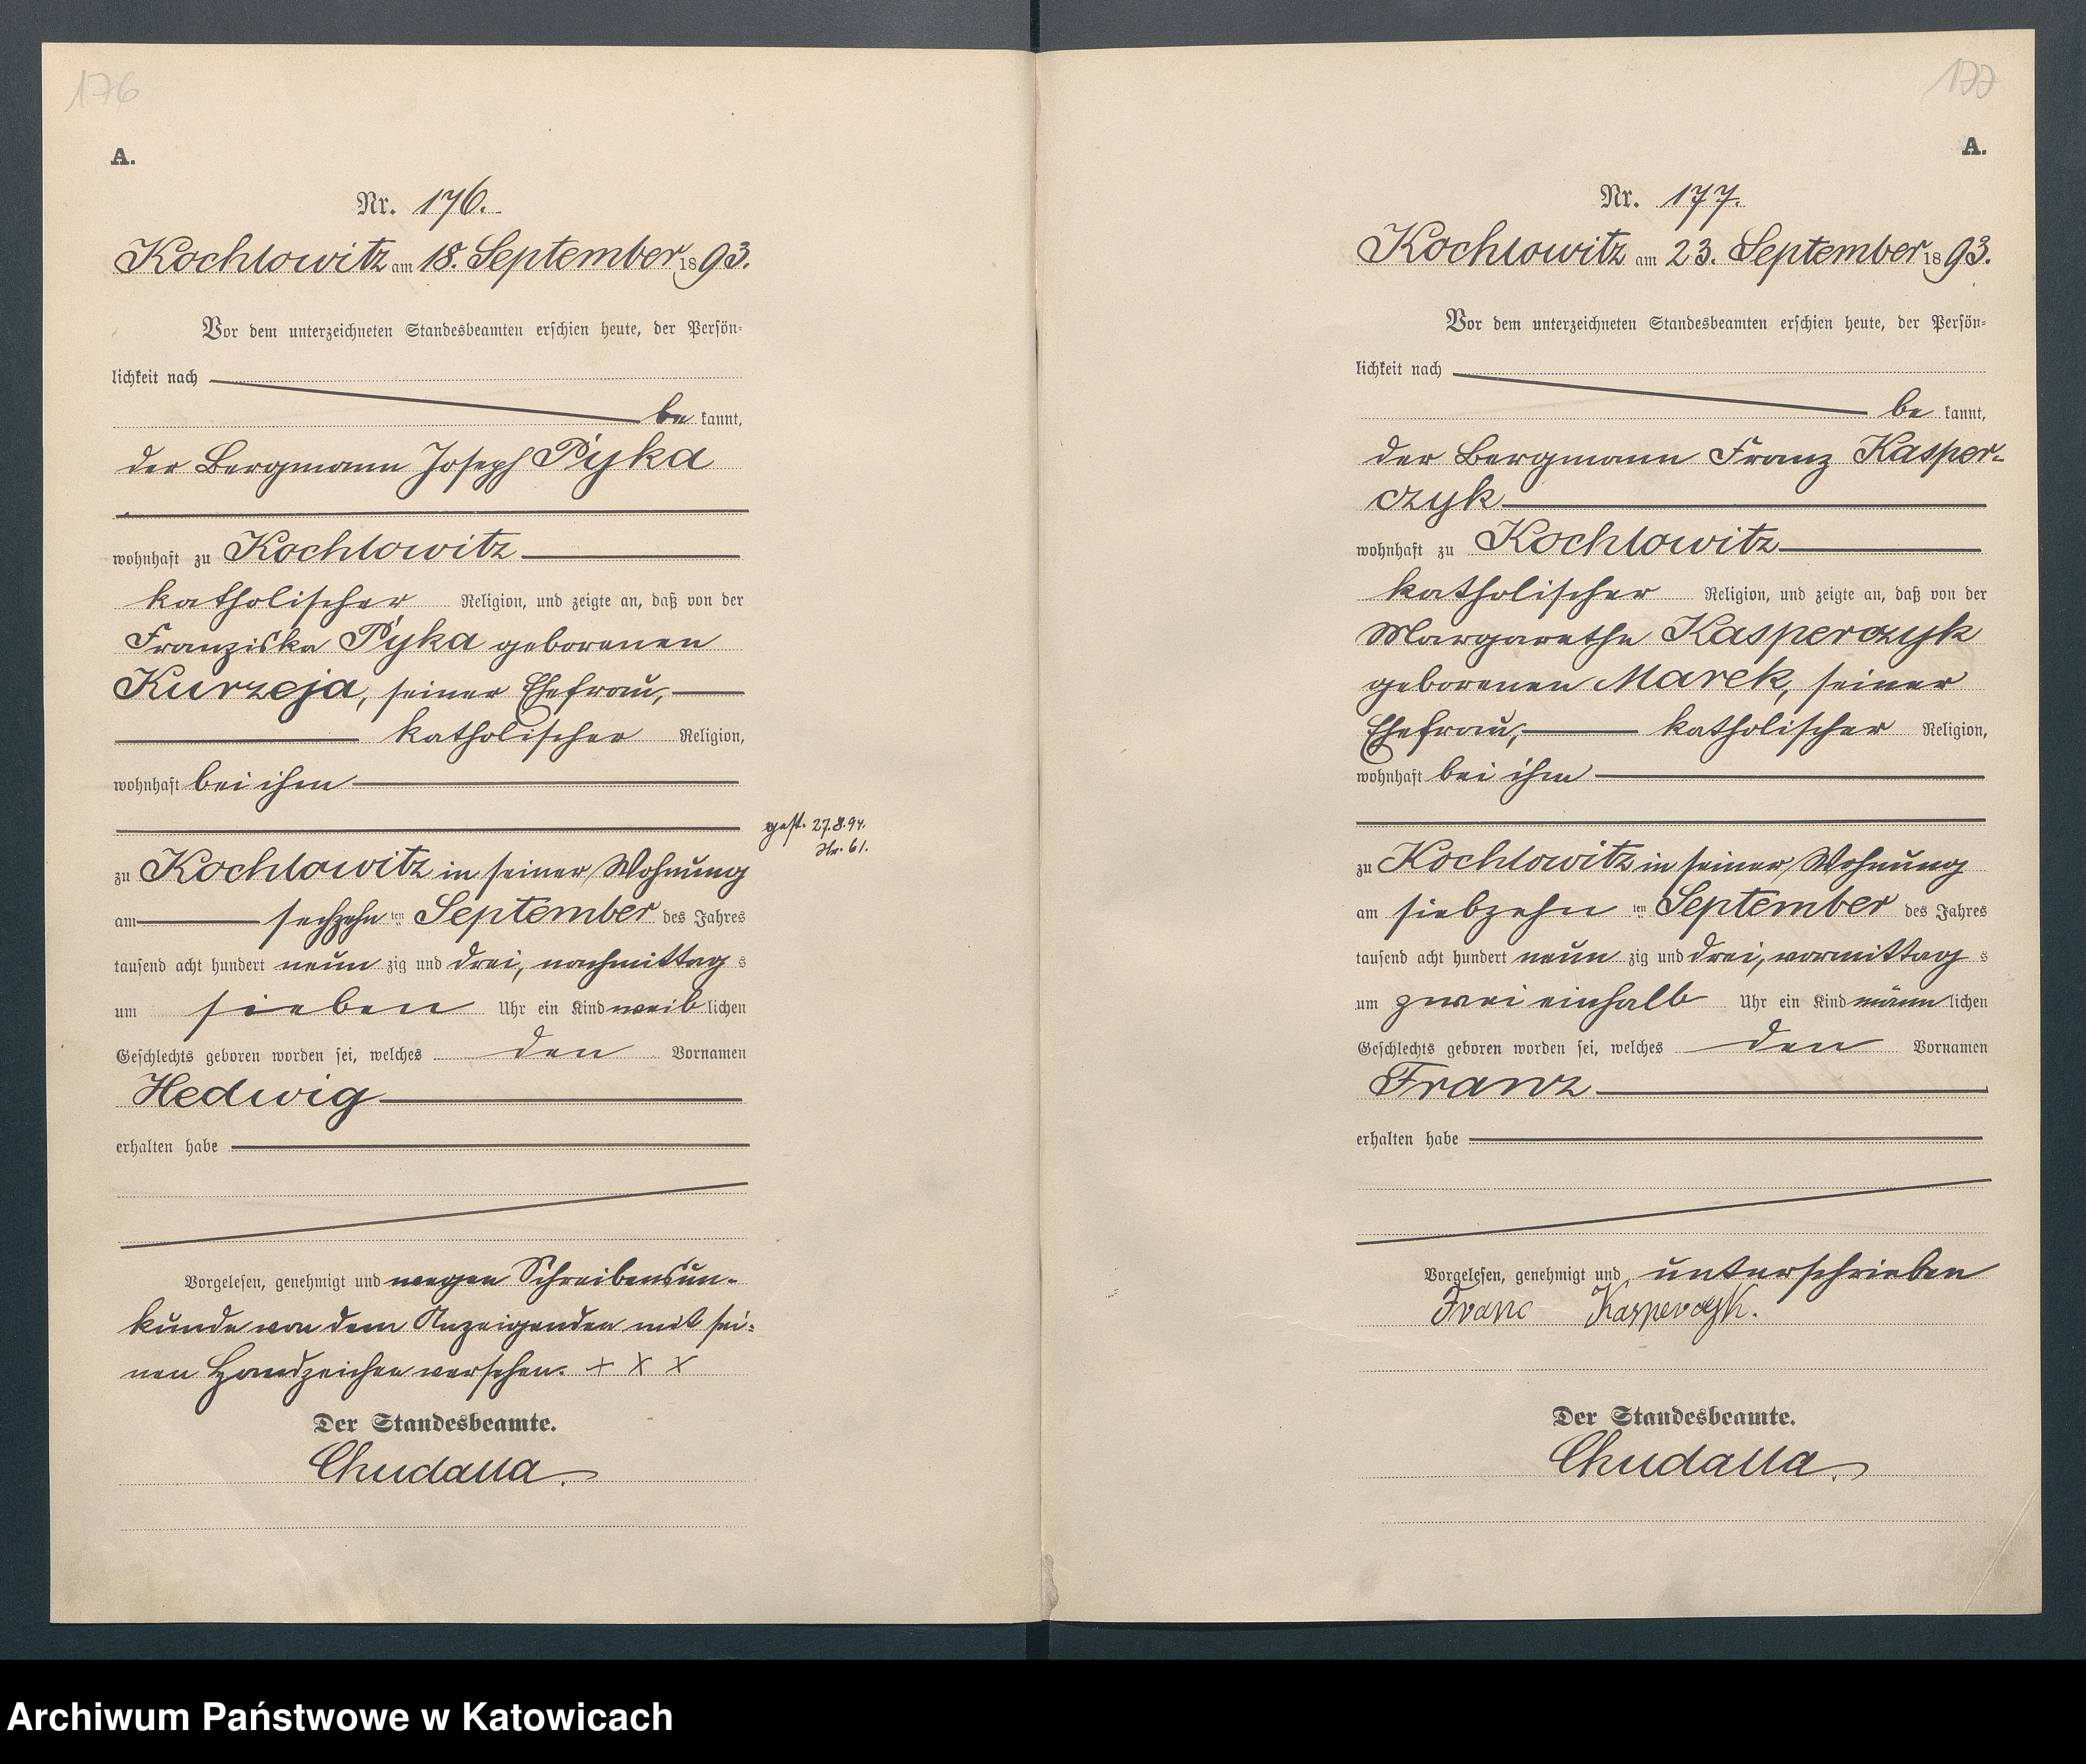 176
A.
Nr. 176.
Kochlowitz am 18. September 1893.
Vor dem unterzeichneten Standesbeamten erschien heute, der Persön-
lichkeit nach
be kannt,
der Bergmann Joseph Pyka
wohnhaft zu Kochlowitz
katholischer Religion, und zeigte an, daß von der
Franziska Pyka geborenen
Kurzeja, seiner Ehefrau,
katholischer Religion,
wohnhaft bei ihm
gest. 27.8.94.
Nr. 61.
zu Kochlowitz in seiner Wohnung
am sechzehn ten September des Jahres
tausend acht hundert neun zig und drei, nachmittag s
um sieben Uhr ein Kind weib lichen
Geschlechts geboren worden sei, welches den Vornamen
Hedwig
erhalten habe
Vorgelesen, genehmigt und wegen Schreibensun-
kunde von dem Anzeigenden mit sei-
nen Handzeichen versehen. + x x
Der Standesbeamte.
Chudalla.
177
A.
Nr. 177.
Kochlowitz am 23. September 1893.
Vor dem unterzeichneten Standesbeamten erschien heute, der Persön-
lichkeit nach
be kannt,
der Bergmann Franz Kasper-
czyk
wohnhaft zu Kochlowitz
katholischer Religion, und zeigte an, daß von der
Margarethe Kasperczyk
geborenen Marek, seiner
Ehefrau, katholischer Religion,
wohnhaft bei ihm
zu Kochlowitz in seiner Wohnung
am siebzehn ten September des Jahres
tausend acht hundert neun zig und drei, vormittag s
um zwei einhalb Uhr ein Kind männ lichen
Geschlechts geboren worden sei, welches den Vornamen
Franz
erhalten habe
Vorgelesen, genehmigt und unterschrieben
Franc Kasperczyk.
Der Standesbeamte.
Chudalla.
Archiwum Państwowe w Katowicach